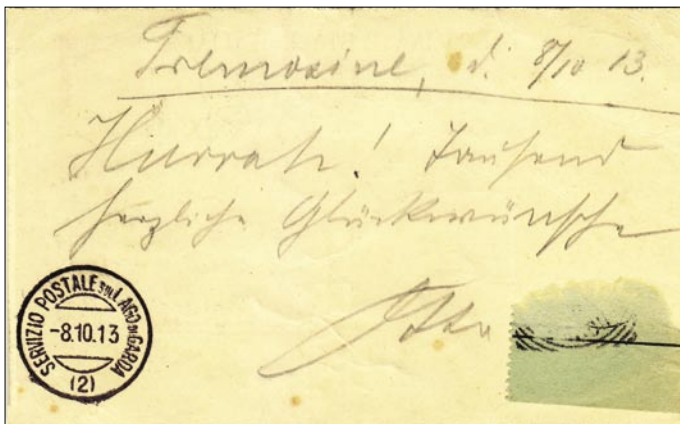 Tremosine, d. 8/10 13.
Hurrah! Tausend
herzliche Glückwünsche
Otto
SERVIZIO POSTALE SUL LAGO DI GARDA
-8.10.13
(2)